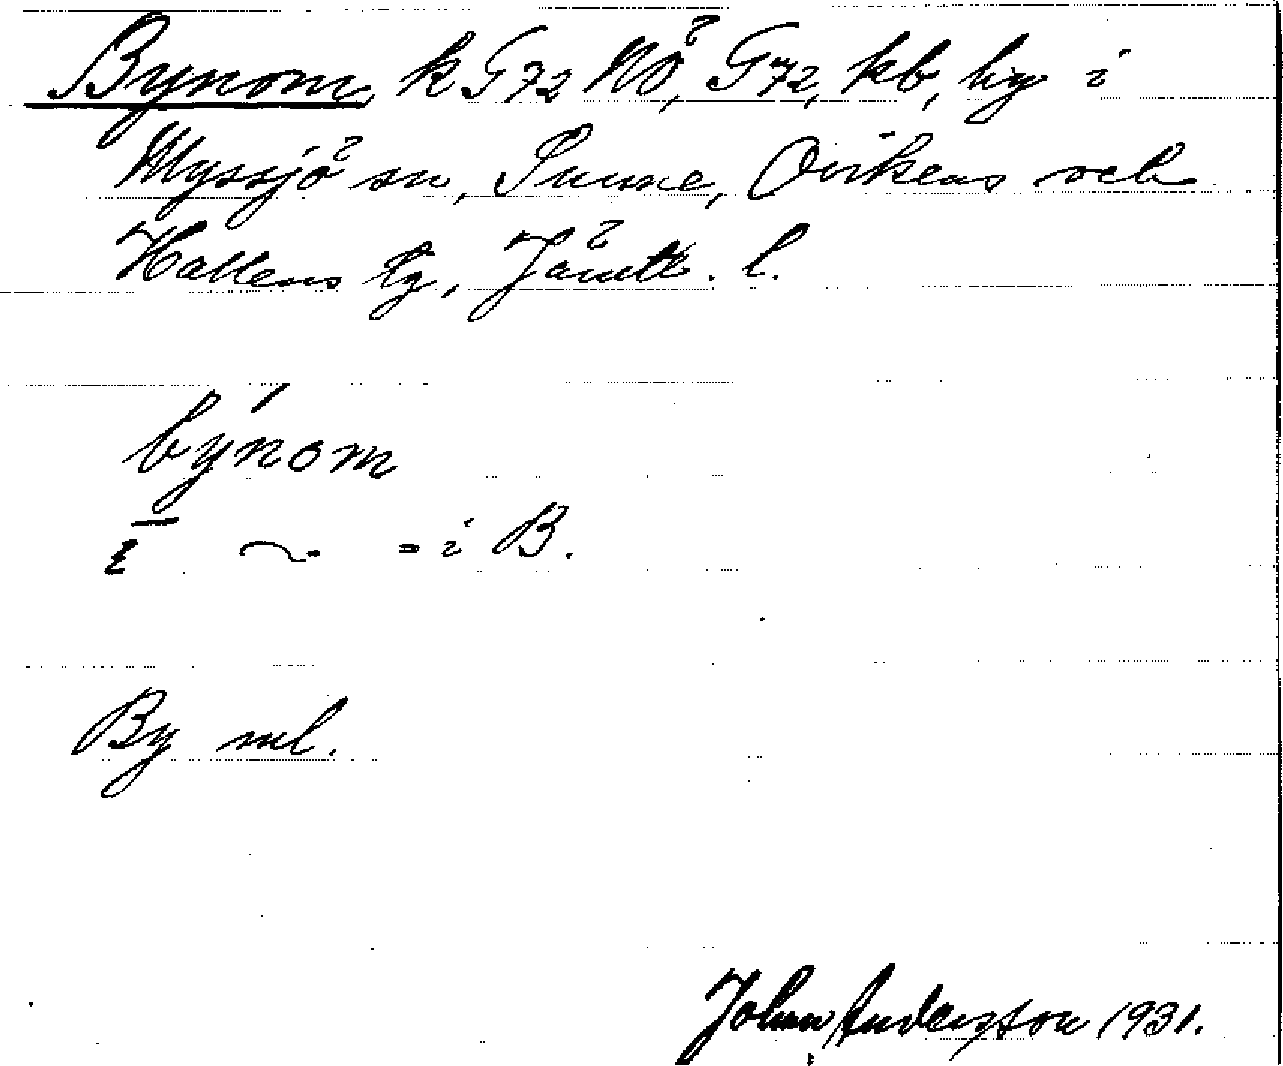 Bynom, k G72 NÖ, G72, kb, by i
Myssjö sn, Sunne, Ovikens och
Hallens tg, Jämtl. l.
býnom
ī ~ = i B.
By ml.
John Andersson 1931.